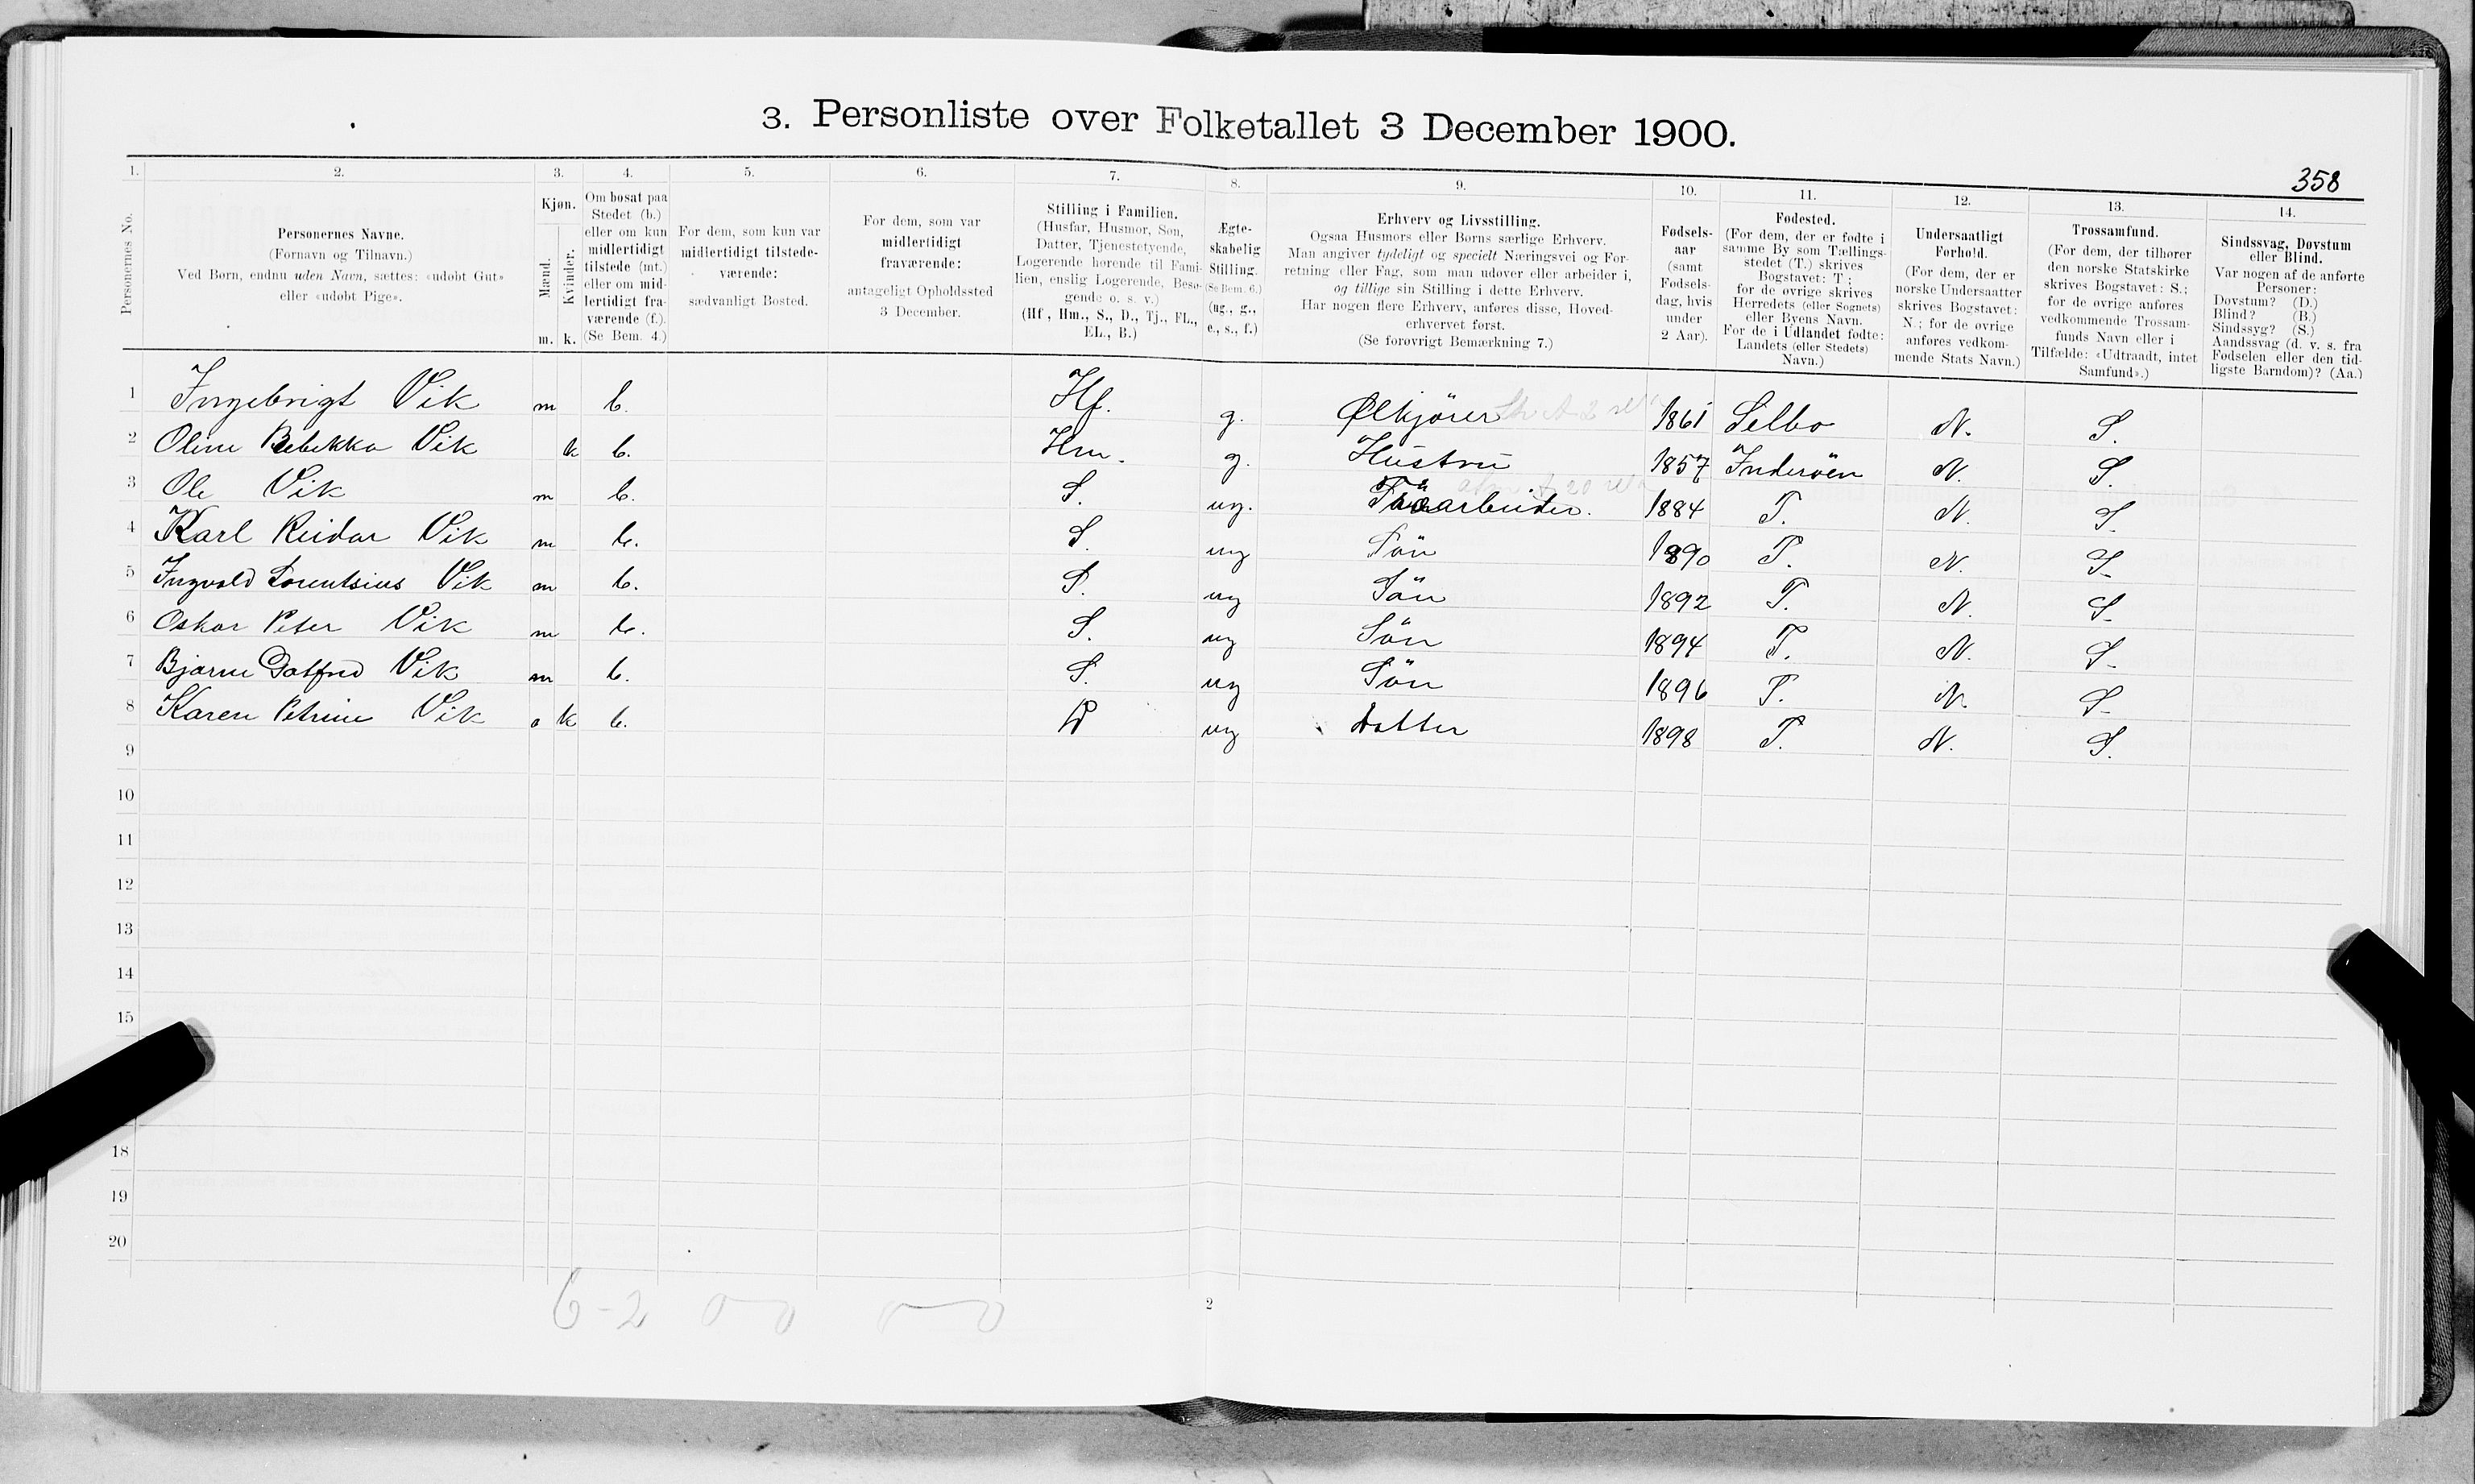 3. Personliste over Folketallet 3 December 1900.
358
1. 2. 3. 4. 5. 6. 7. 8. 9. 10. 11. 12. 13. 14.
Personernes No.
Personernes Navne.
(Fornavn og Tilnavn.)
Ved Børn, endnu uden Navn, sættes: «udøbt Gut»
eller «udøbt Pige».
Kjøn.
Mænd.
Kvinder.
m. k.
Om bosat paa
Stedet (b.)
eller om kun
midlertidigt
tilstede (mt.)
eller om mid-
lertidigt fra-
værende (f.).
(Se Bem. 4.)
For dem, som kun var
midlertidigt tilstede-
værende:
sædvanligt Bosted.
For dem, som var
midlertidigt
fraværende:
antageligt Opholdssted
3 December.
Stilling i Familien.
(Husfar, Husmor, Søn,
Datter, Tjenestetyende,
Logerende hørende til Fami-
lien, enslig Logerende, Besø-
gende o. s. v.)
(Hf., Hm., S., D., Tj., FL.,
EL., B.)
Ægte-
skabelig
Stilling.
(Se Bem. 6.)
(ug., g.,
e., s., f.)
Erhverv og Livsstilling.
Ogsaa Husmors eller Børns særlige Erhverv.
Man angiver tydeligt og specielt Næringsvei og For-
retning eller Fag, som man udøver eller arbeider i,
og tillige sin Stilling i dette Erhverv.
Har nogen flere Erhverv, anføres disse, Hoved-
erhvervet først.
(Se forøvrigt Bemærkning 7.)
Fødsels-
aar
(samt
Fødsels-
dag, hvis
under
2 Aar).
Fødested.
(For dem, der er fødte i
samme By som Tællings-
stedet (T.) skrives
Bogstavet: T;
for de øvrige skrives
Herredets (eller Sognets)
eller Byens Navn.
For de i Udlandet fødte:
Landets (eller Stedets)
Navn.)
Undersaatligt
Forhold.
(For dem, der er
norske Undersaatter
skrives Bogstavet:
N.; for de øvrige
anføres vedkom-
mende Stats Navn.)
Trossamfund.
(For dem, der tilhører
den norske Statskirke
skrives Bogstavet: S.;
for de øvrige anføres
vedkommende Trossam-
funds Navn eller i
Tilfælde: «Udtraadt, intet
Samfund».)
Sindssvag, Døvstum
eller Blind.
Var nogen af de anførte
Personer:
Døvstum? (D.)
Blind? (B.)
Sindssyg? (S.)
Aandssvag (d. v. s. fra
Fødselen eller den tid-
ligste Barndom)? (Aa.)
1 Ingebrigt Vik m b. Hf. g. Ølkjører 1861 Selbo N. S.
2 Oline Rebekka Vik k b. Hm. g. Hustru 1857 Inderöen N. S.
3 Ole Vik m b. S. ug. Träarbeider. 1884 T. N. S.
4 Karl Reidar Vik m b. S. ug Sön 1890 T. N. S.
5 Ingvald Lorentsius Vik m b. S. ug Sön 1892 T. N. S.
6 Oskar Peter Vik m b. S. ug Sön 1894 T. N. S.
7 Bjarne Gotfred Vik m b. S. ug Sön 1896 T. N. S.
8 Karen Petrine Vik o k b. D ug Datter 1898 T. N. S.
9
10
11
12
13
14
15
18
19
20
6-2 0 0 0 0
2